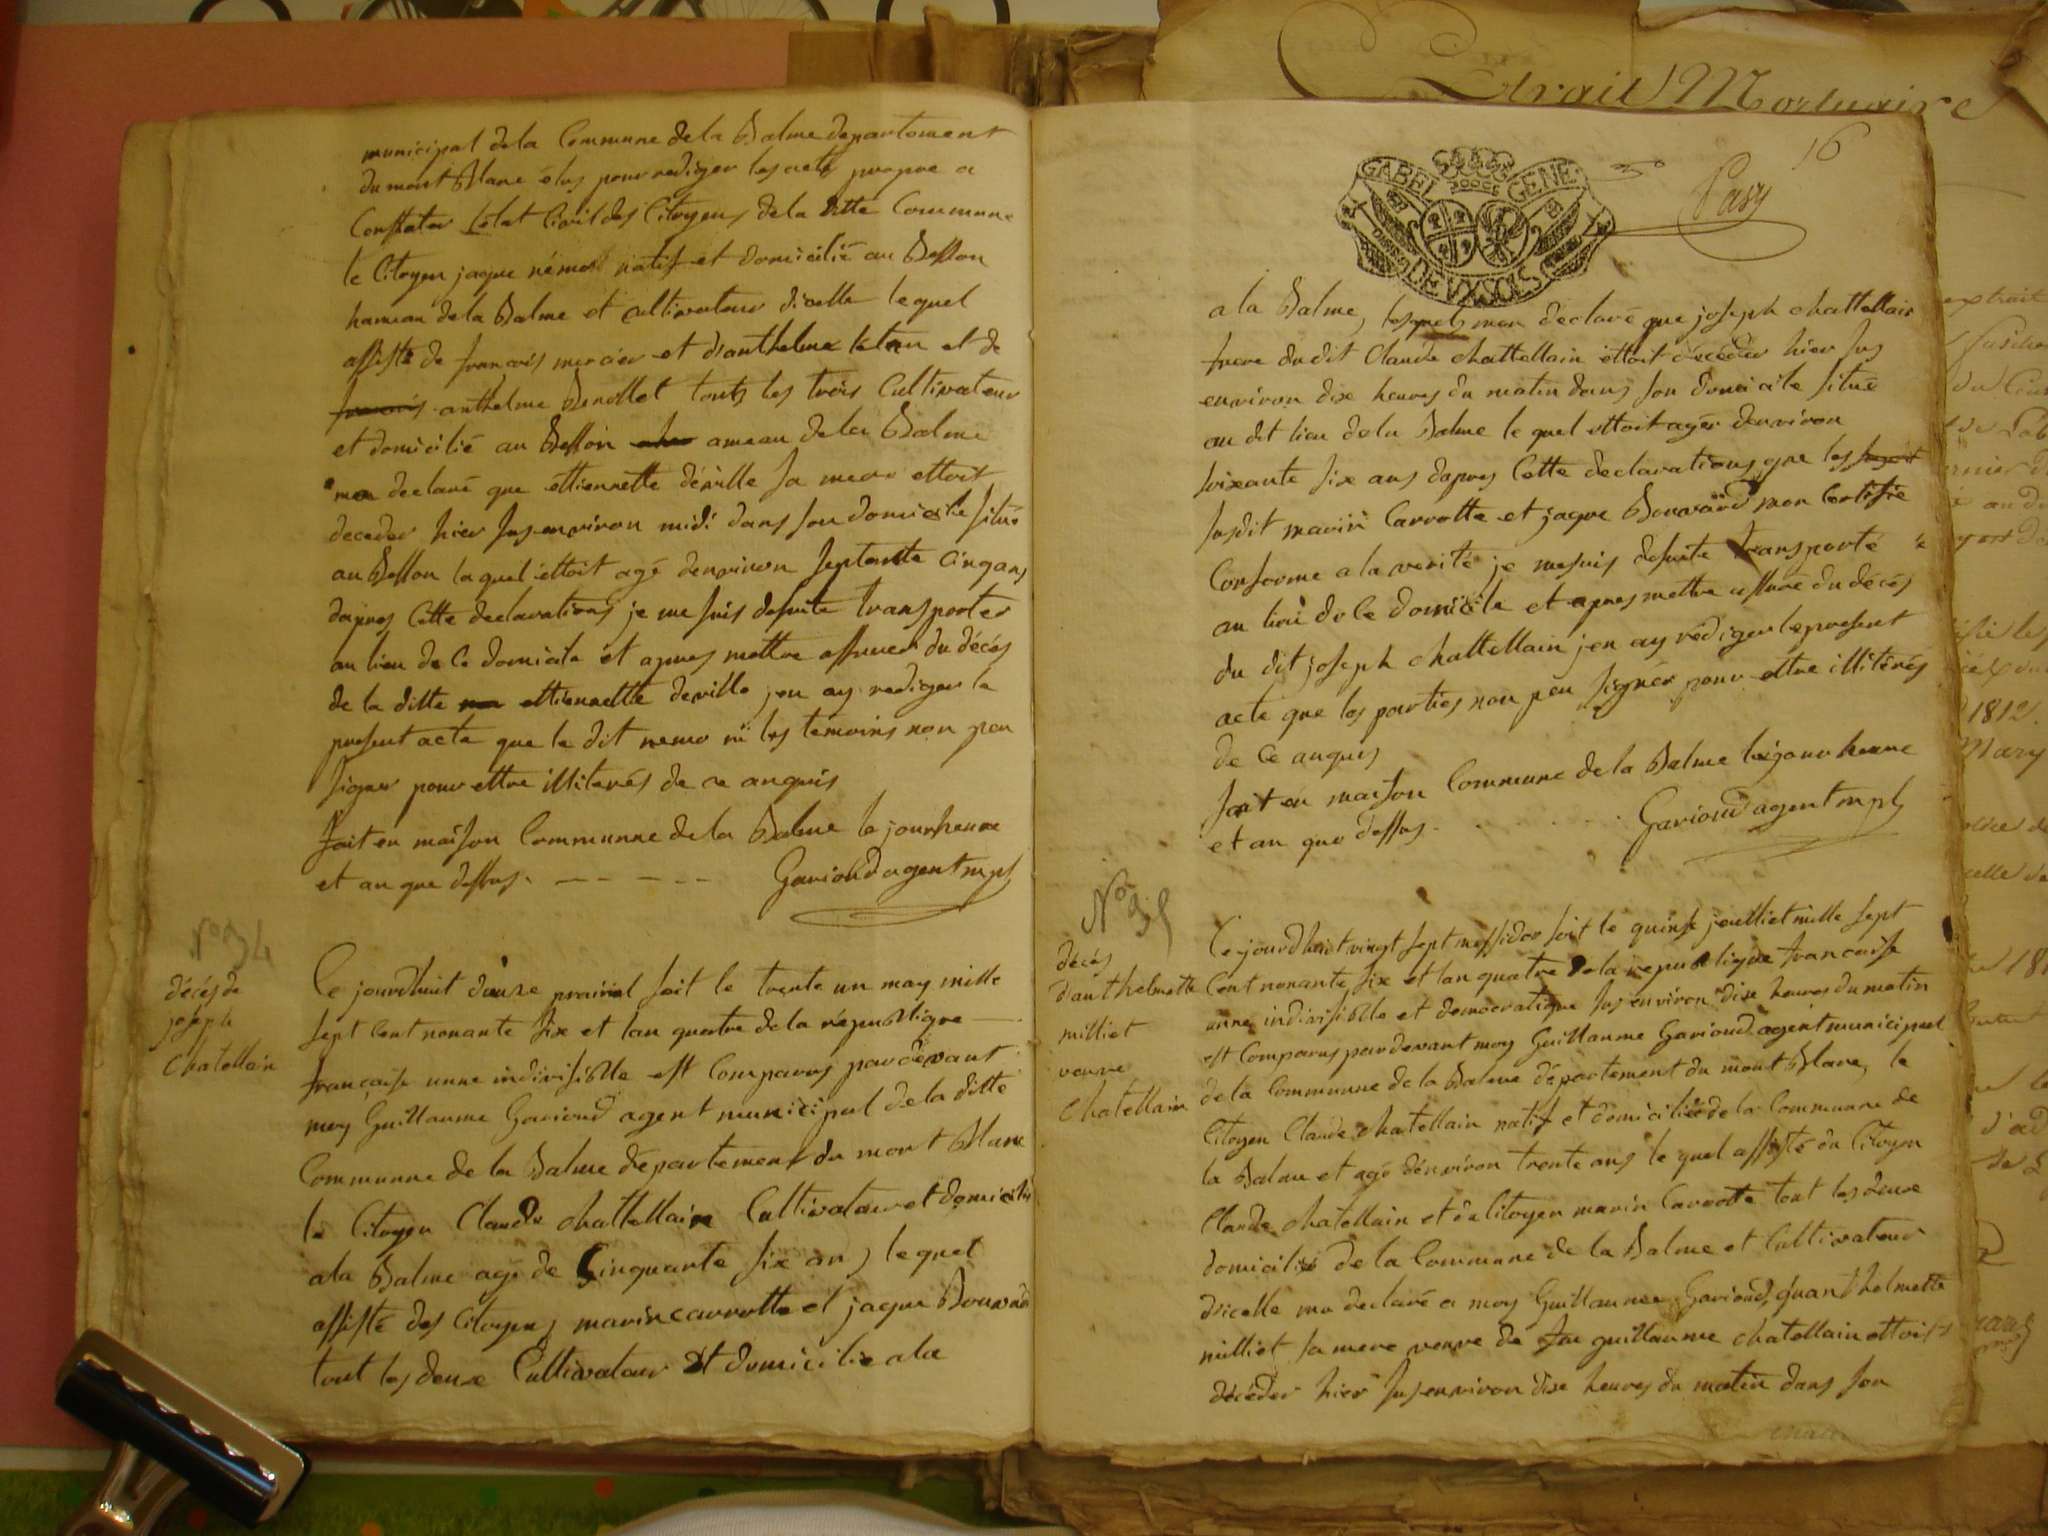 municipal de la Commune de la Balme departement
du mont Blanc élus pour rediger les acte propre a
Constater Létat Civil des Citoyens de la ditte Commune
le Citoyen jaque némo natif et domicilié au Besson
hameau de la Balme et cultivateur dicelle lequel
assisté de francois mercier et danthelme et de
francois anthelme Benollet touts les trois Cultivateur
et domicilié au Besson ameau de la Balme
ma declaré que ettiennette déville sa mere ettoit
deceder hier sus environ midi dans son domicile situé
au Besson laquel éttoit agé denviron septante cinq ans
dapres Cette declarations je me suis desuite transporter
au lieu de Ce domicile et apres mettre assurer du décés
de la ditte ettiennette deville jen ay rediger le
present acte que le dit nemo ni les temoins non peu
signer pour ettre illiterés de ce anquis
fait en maison Commune de la Balme le jour heure
et an que dessus. - - - - - Gavioud agent mpl
No 34
décés de
joseph
Chatellain
Ce jourdhuit douze prairial soit le trente un may mille
sept Cent nonante six et lan quatre de la république
francaise unne indivisiblle est Comparus pardevant
moy Guillaume Gavioud agent municipal de la ditte
Commune de la Balme département du mont Blanc
le Citoyen Claude chattellain Cultivateur et domicilié
a la Balme agé de Cinquante six ans lequel
assisté des Citoyens marin carrotte et jaque Bouvard
tout les deux Cultivateur et domicilie a la
Extrait Mortuaire
16
GABEL GENE
DEVX SOLS
Pasy
a la Balme, lesquels mon declaré que joseph chattellain
frere du dit Claude chattellain ettoit décéder hier sus
environ dix heures du matin dans son domicile situé
au dit lieu de la Balme le quel ettoit agér denviron
soixante six ans dapres Cette declarations que les
susdit marin Carrotte et jaque Bouvard mon Certifie
Conforme a la verité je mesuis desuite transporté
au lieu de Ce domicile et apres mettre assuré du décés
du dit joseph chattellain jen ay rédiger le present
acte que les parties non peu signér pour ettre illitérés
de Ce anquis
fait en maison Commune de la Balme le jour heure
et an que dessus. Gavioud agent mpl
No 35
décés
danthelmette
milliet
veuve
Chatellain
Ce jourdhuit vingt sept messidor soit le quinse jeulliet mille sept
Cent nonante six et lan quatre de la republique francaise
unne indivisiblle et democratique sus environ dix heures du matin
est Comparus pardevant moy Guillaume Gavioud agent municipal
de la Commune de la Balme département du mont Blanc, le
Citoyen Claude chatellain natif et domicilié de la Commune de
la Balme et agé denviron trente ans le quel assisté du Citoyen
Claude chatellain et du Citoyen marin Carrotte tout les deux
domicilié de la Commune de la Balme et Cultivateur
dicelle ma declaré a moy Guillaume Gavioud, quanthelmette
milliet sa mere veuve de feu guillaume chatellain ettoit
décéder hier sus environ dix heures du matin dans son
1812.
Mary